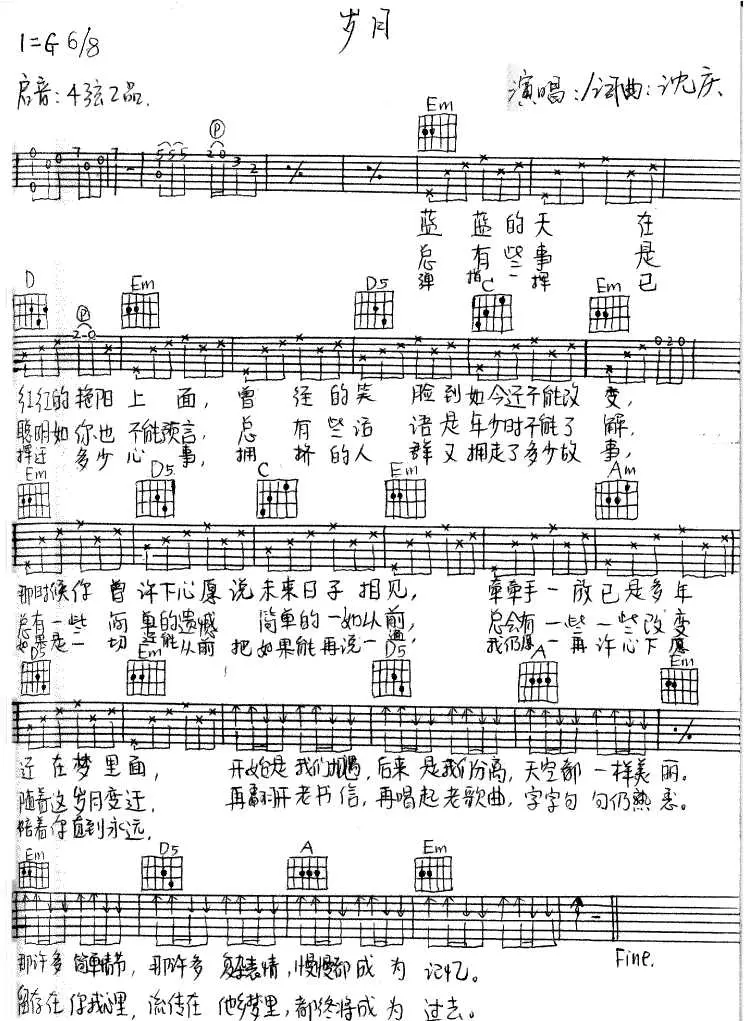 岁月
1=G 6/8
启音:4弦2品.
演唱:/词曲:沈庆
Em
P
0 0 0 7 0 7 5 5 5 0 2 0 3 2
蓝 蓝 的 天 在
总 有 些 事 是
弹 指 一 挥 已
D Em D5 C Em
P
2-0 0 2 0
红红的艳阳上面,曾经的笑脸到如今还不能改变,
聪明如你也不能预言,总有些话语是年少时不能了解,
挥还多少心事,拥挤的人群又拥走了多少故事,
Em D5 C Em Am
那时候你曾许下心愿说未来日子相见,牵牵手一放已是多年
总有一些简单的遗憾 简单的一如从前,总会有一些一些改变
如果是一切能从前把如果能再说一遍,我们愿一再许心下愿
D5 Em D5 A Em
还在梦里面,开始是我们相遇,后来是我们分离,天空都一样美丽。
随着这岁月变迁,再翻开老书信,再唱起老歌曲,字字句句仍熟悉。
陪着你直到永远.
Em D5 A Em
那许多简单情节,那许多复杂表情,慢慢都成为记忆。
Fine.
留存在你我心里,流传在他乡梦里,都终将成为过去。